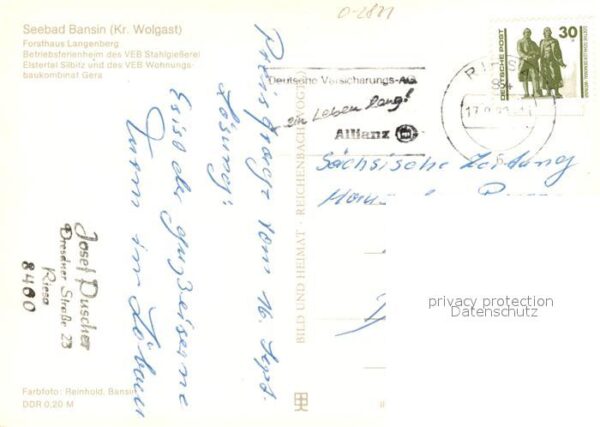 Seebad Bansin (Kr. Wolgast)
Forsthaus Langenberg
Betriebsferienheim des VEB Stahlgießerei
Elstertal Silbitz und des VEB Wohnungs-
baukombinat Gera
0-2821
Preisfrage vom 16. Sept.
Lösung:
Es ist der gußeiserne
Turm in Löbau
Josef Puscher
Dresdner Straße 23
Riesa
8400
Farbfoto: Reinhold, Bansin
DDR 0,20 M
BILD UND HEIMAT · REICHENBACH (VOGTL)
DEUTSCHE POST
30
RIESA
Deutsche Versicherungs-AG
ein Leben lang!
Allianz
Sächsische Zeitung
privacy protection
Datenschutz